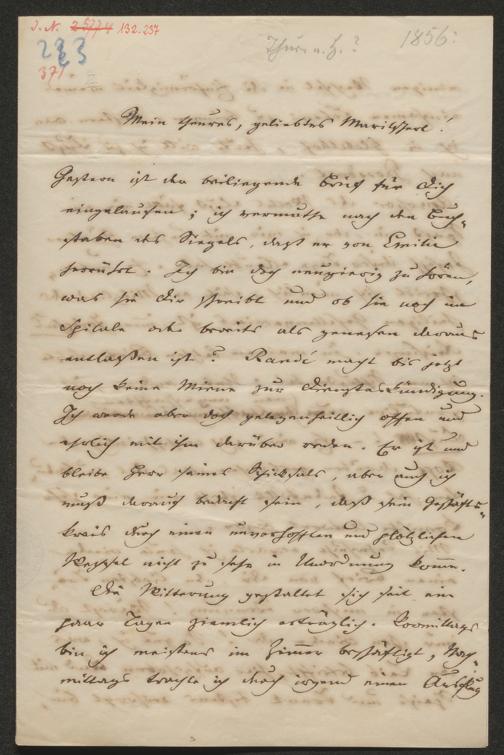 J. N. 25774 132.237
233
37/
Thurn a. H.? 1856:
Mein theures, geliebtes Marihherl!
Gestern ist der beiliegende Brief für Dich
eingelaufen; ich vermuthe nach den Buch-
staben des Siegels, daß er von Emilie
herrührt. Ich bin doch neugierig zu hören,
was sie Dir schreibt und ob sie noch im
Spitale oder bereits als genesen daraus
entlaßen ist? Randé macht bis jetzt
noch keine Miene zur Dienstes-Kündigung.
Ich werde aber doch gelegenheitlich offen und
ehrlich mit ihm darüber reden. Er ist und
bleibe Herr seines Schicksals, aber auch ich
muß darauf bedacht sein, daß sein Geschäfts-
kreis durch einen unverhofften und plötzlichen
Wechsel nicht zu sehr in Unordnung komme.
Die Witterung gestaltet sich seit ein
paar Tagen ziemlich erträglich. Vormittags
bin ich meistens im Zimmer beschäftigt, Nach-
mittags trachte ich durch irgend einen Ausflug